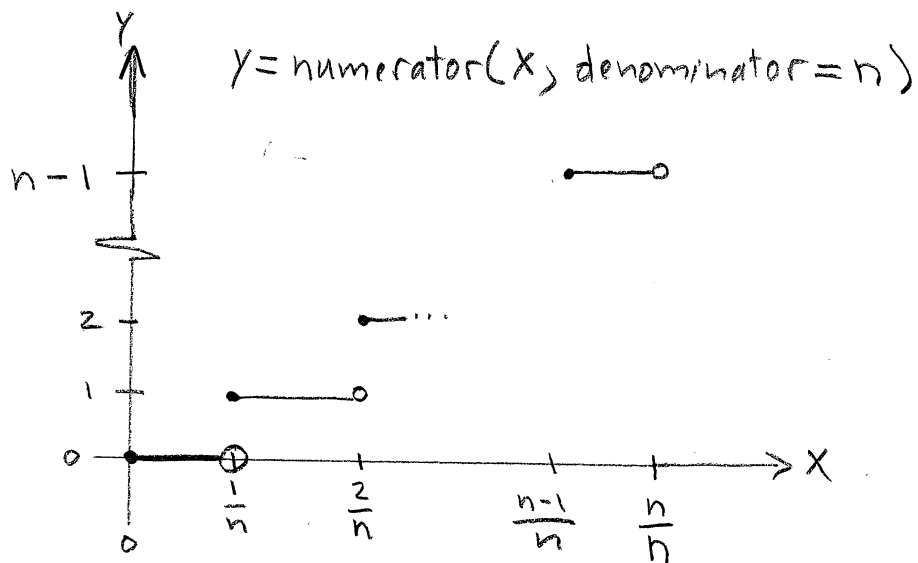 Y
y = numerator(x, denominator = n)
n - 1
2 ...
1
0 X
0 1/n 2/n n-1/n n/n